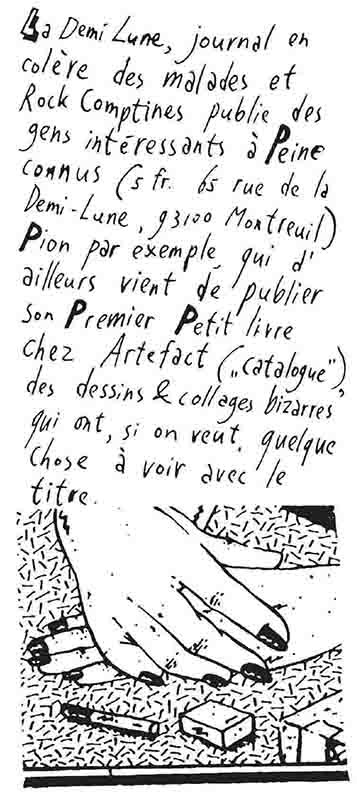 La Demi Lune, journal en
colère des malades et
Rock Comptines publie des
gens intéressants à Peine
connus (5 fr. 65 rue de la
Demi-Lune, 93100 Montreuil)
Pion par exemple, qui d'
ailleurs vient de publier
son Premier Petit livre
chez Artefact („catalogue"),
des dessins & collages bizarres
qui ont, si on veut, quelque
chose à voir avec le
titre.